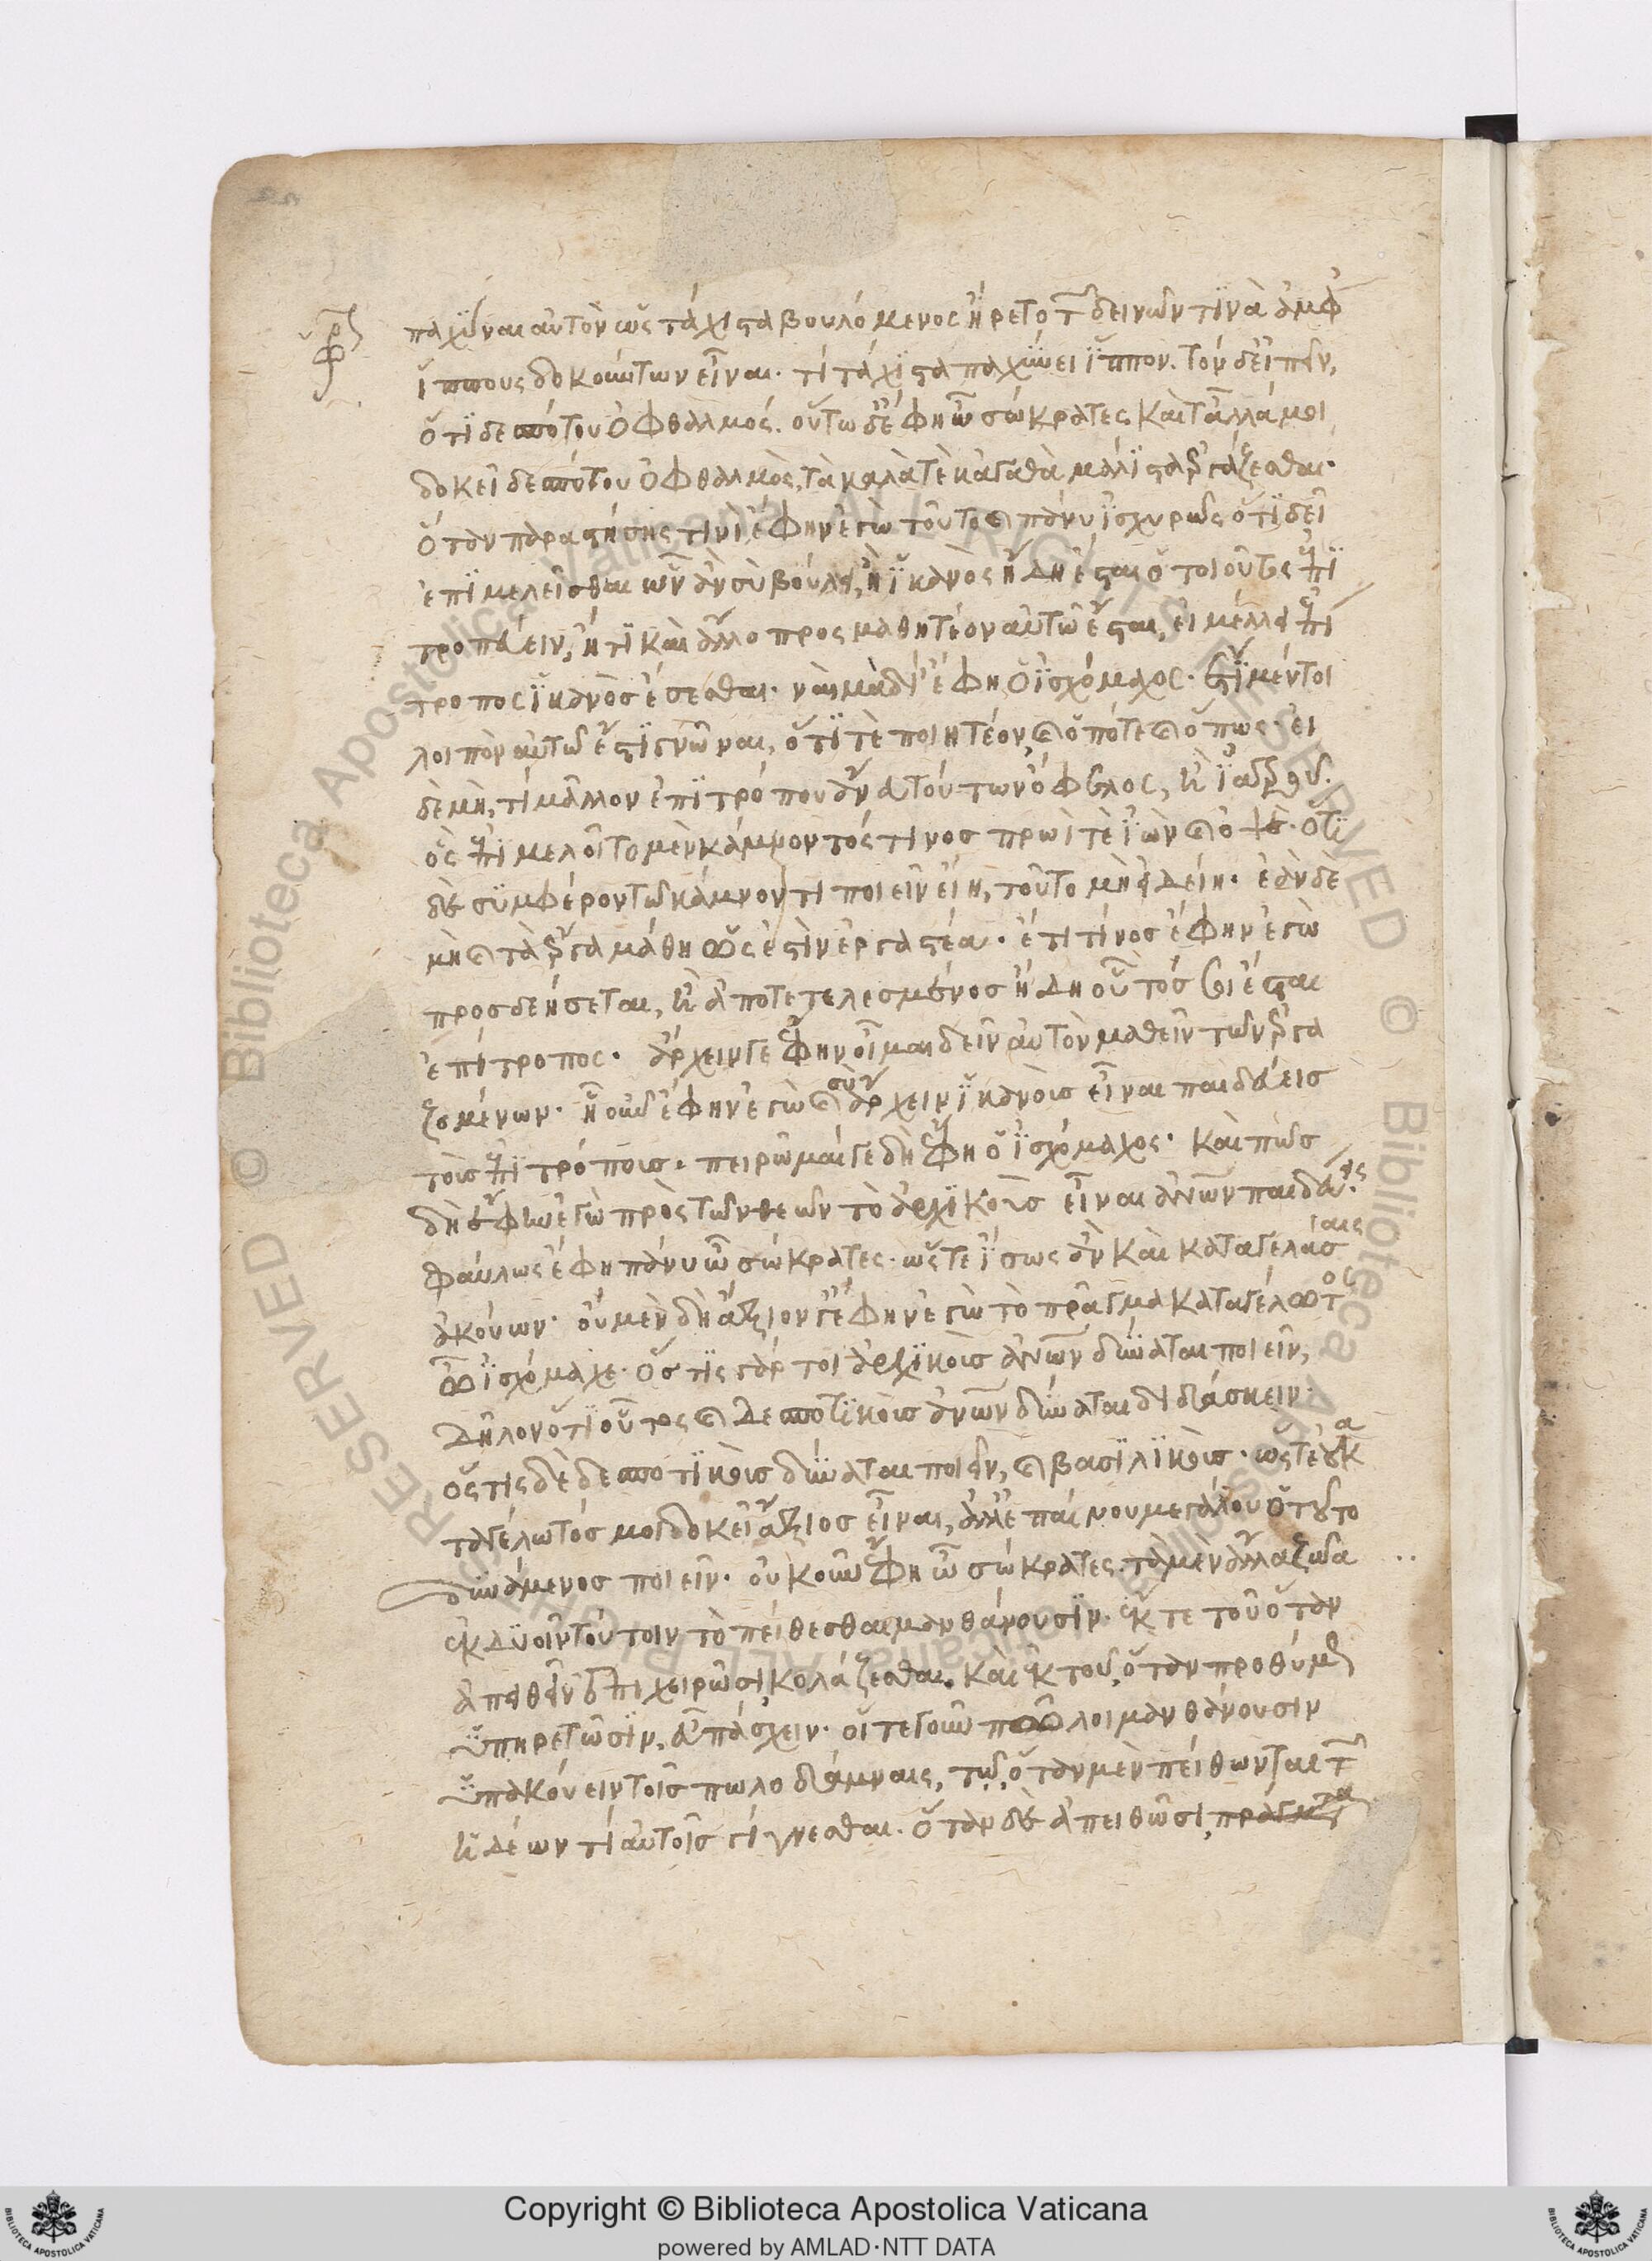 παχῦναι αὐτὸν ὡς τάχιστα βουλόμενος ἤρετο τῶν δεινῶν τινὰ ἀμφ
ἵππους δοκούντων εἶναι. τί τάχιστα παχύνει ἵππον. τὸν δ εἰπεῖν,
ὅτι δεσπότου ὀφθαλμός. οὕτω δ ἔφη ὦ σώκρατες καὶ τἄλλά μοι
δοκεῖ δεσπότου ὀφθαλμὸς, τὰ καλὰ τὲ κἀγαθὰ μάλιστα ἐργάζεσθαι.
ὅταν παραστήσῃς τινὶ ἔφην ἐγὼ τοῦτο καὶ πάνυ ἰσχυρῶς ὅτι δεῖ
ἐπιμελεῖσθαι ὧν ἂν σὺ βούλῃ, ἢ ἱκανὸς ἤδη ἔσται ὁ τοιοῦτος ἐπι
τροπεύειν, ἤ τι καὶ ἄλλο προσμαθητέον αὐτῷ ἔσται, εἰ μέλλει ἐπί
τροπος ἱκανὸς ἔσεσθαι. ναὶ μὰ δί ἔφη ὁ ἰσχόμαχος. ἔτι μέντοι
λοιπὸν αὐτῷ ἐστὶ γνῶναι, ὅτι τὲ ποιητέον, καὶ ὁπότε καὶ ὅπως. εἰ
δὲ μὴ, τί μᾶλλον ἐπιτρόπου ἄνευ τούτων ὄφελος, ἢ ἰατροῦ.
ὃς ἐπιμελοῖτο μὲν κάμνοντός τινος πρωί τὲ ἰὼν καὶ ὀψέ. ὅτι
δὲ συμφέρον τῷ κάμνοντι ποιεῖν εἴη, τοῦτο μὴ εἰδείη. ἐὰν δὲ
μὴ καὶ τὰ ἔργα μάθῃ ὡς ἐστὶν ἐργαστέα. ἔτι τίνος ἔφην ἐγὼ
προσδεήσεται, ἢ ἀποτετελεσμένος ἤδη οὗτός σοι ἔσται
ἐπίτροπος. ἄρχειν γε ἔφην οἶμαι δεῖν αὐτὸν μαθεῖν τῶν ἐργα
ζομένων. ἦ οὖν ἔφην ἐγὼ καὶ σὺ ἄρχειν ἱκανοὺς εἶναι παιδεύεις
τοὺς ἐπιτρόπους. πειρῶμαί γε δὴ ἔφη ὁ ἰσχόμαχος. καὶ πῶς
δὴ ἔφην ἐγὼ πρὸς τῶν θεῶν τὸ ἀρχικοὺς εἶναι ἀνων παιδεύεις.
φαύλως ἔφη πάνυ ὦ σώκρατες. ὥστε ἴσως ἂν καὶ καταγελάσαις
ἀκούων. οὐ μὲν δὴ ἄξιόν γ ἔφην ἐγὼ τὸ πρᾶγμα καταγέλωτος
ὦ ἰσχόμαχε. ὅστις γάρ τοι ἀρχικοὺς ἀνων δύναται ποιεῖν,
δῆλον ὅτι οὗτος καὶ δεσποτικοὺς ἀνων δύναται διδάσκειν.
ὅστις δὲ δεσποτικοὺς δύναται ποιεῖν, καὶ βασιλικούς. ὥστε οὐ κα
ταγέλωτός μοι δοκεῖ ἄξιος εἶναι, ἀλλ ἐπαίνου μεγάλου ὁ τοῦτο
δυνάμενος ποιεῖν. οὐκοῦν ἔφη ὦ σώκρατες. τὰ μὲν ἄλλα ζῶα
ἐκ δυοῖν τούτοιν τὸ πείθεσθαι μανθάνουσιν. ἔκ τε τοῦ ὅταν
ἀπειθεῖν ἐπιχειρῶσι, κολάζεσθαι. καὶ ἐκ τοῦ, ὅταν προθύμως
ὑπηρετῶσιν, εὖ πάσχειν. οἵ τε γοῦν πῶλοι μανθάνουσιν
ὑπακούειν τοῖς πωλοδάμναις, τῷ, ὅταν μὲν πείθωνται τῶν
ἡδέων τί αὐτοῖς γίγνεσθαι. ὅταν δὲ ἀπειθῶσι, πράγματα